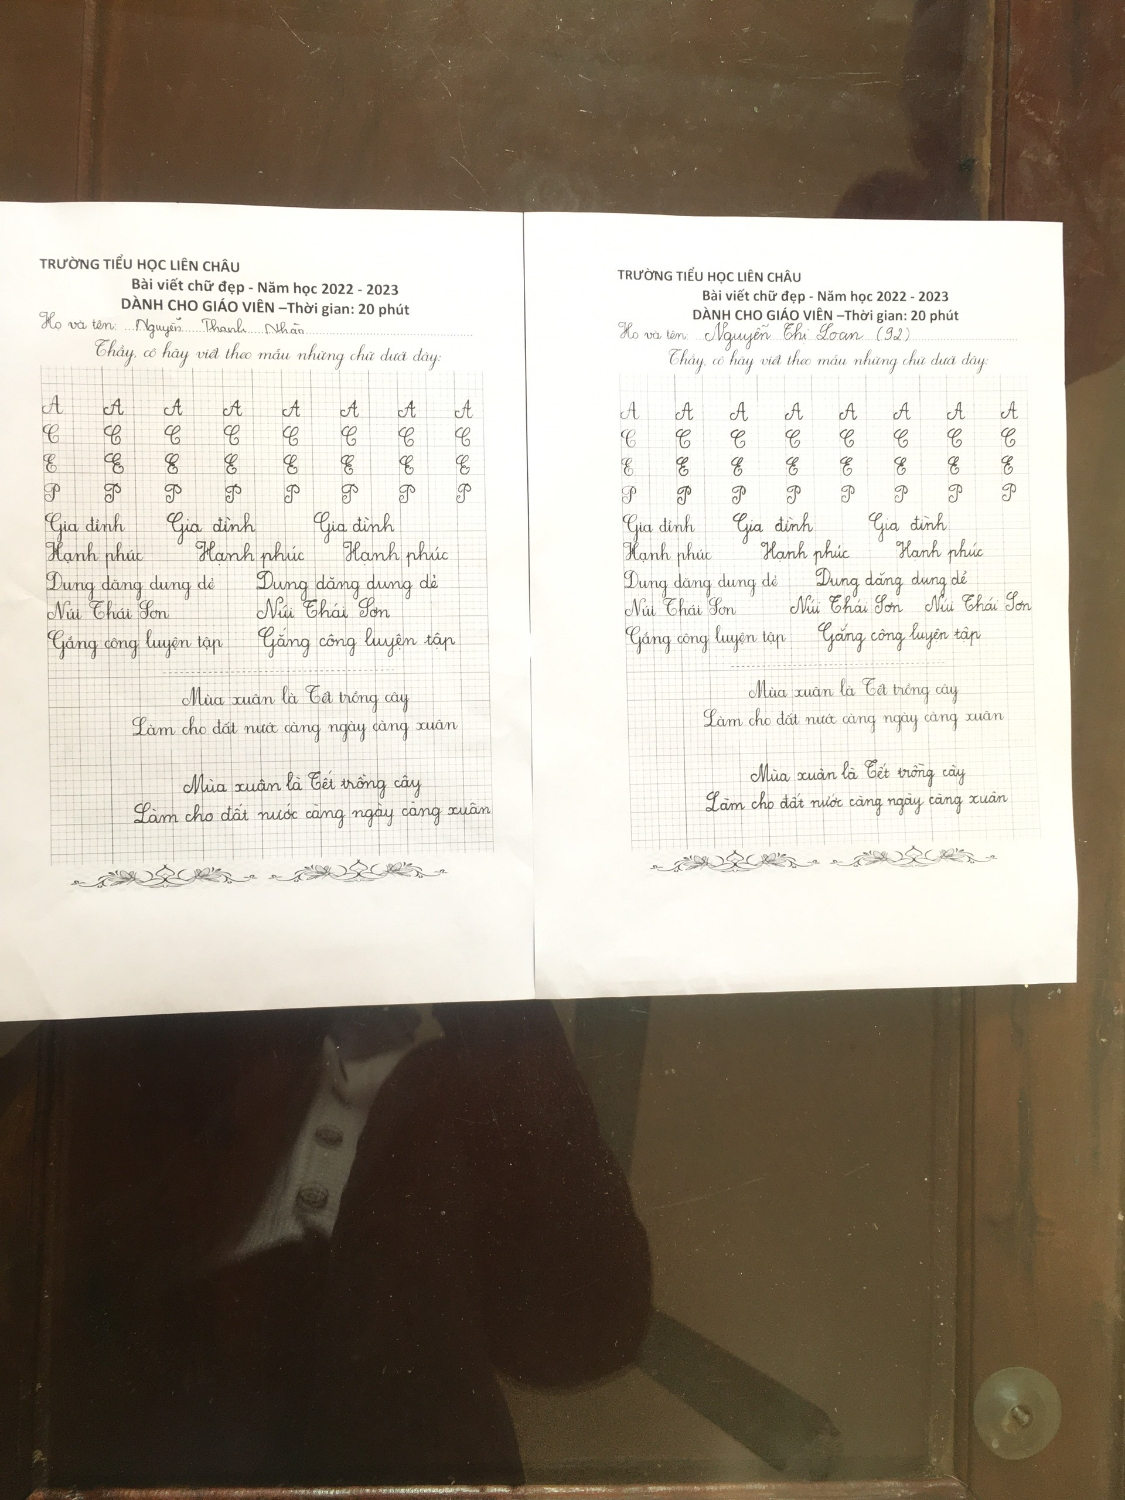 TRƯỜNG TIỂU HỌC LIÊN CHÂU
Bài viết chữ đẹp - Năm học 2022 - 2023
DÀNH CHO GIÁO VIÊN –Thời gian: 20 phút
Họ và tên: Nguyễn Thanh Nhàn
Thầy, cô hãy viết theo mẫu những chữ dưới đây:
A A A A A A A A
C C C C C C C C
E E E E E E E E
P P P P P P P P
Gia đình Gia đình Gia đình
Hạnh phúc Hạnh phúc Hạnh phúc
Dung dăng dung dẻ Dung dăng dung dẻ
Núi Thái Sơn Núi Thái Sơn
Gắng công luyện tập Gắng công luyện tập
Mùa xuân là Tết trồng cây
Làm cho đất nước càng ngày càng xuân
Mùa xuân là Tết trồng cây
Làm cho đất nước càng ngày càng xuân
TRƯỜNG TIỂU HỌC LIÊN CHÂU
Bài viết chữ đẹp - Năm học 2022 - 2023
DÀNH CHO GIÁO VIÊN –Thời gian: 20 phút
Họ và tên: Nguyễn Thị Loan (92)
Thầy, cô hãy viết theo mẫu những chữ dưới đây:
A A A A A A A A
C C C C C C C C
E E E E E E E E
P P P P P P P P
Gia đình Gia đình Gia đình
Hạnh phúc Hạnh phúc Hạnh phúc
Dung dăng dung dẻ Dung dăng dung dẻ
Núi Thái Sơn Núi Thái Sơn Núi Thái Sơn
Gắng công luyện tập Gắng công luyện tập
Mùa xuân là Tết trồng cây
Làm cho đất nước càng ngày càng xuân
Mùa xuân là Tết trồng cây
Làm cho đất nước càng ngày càng xuân